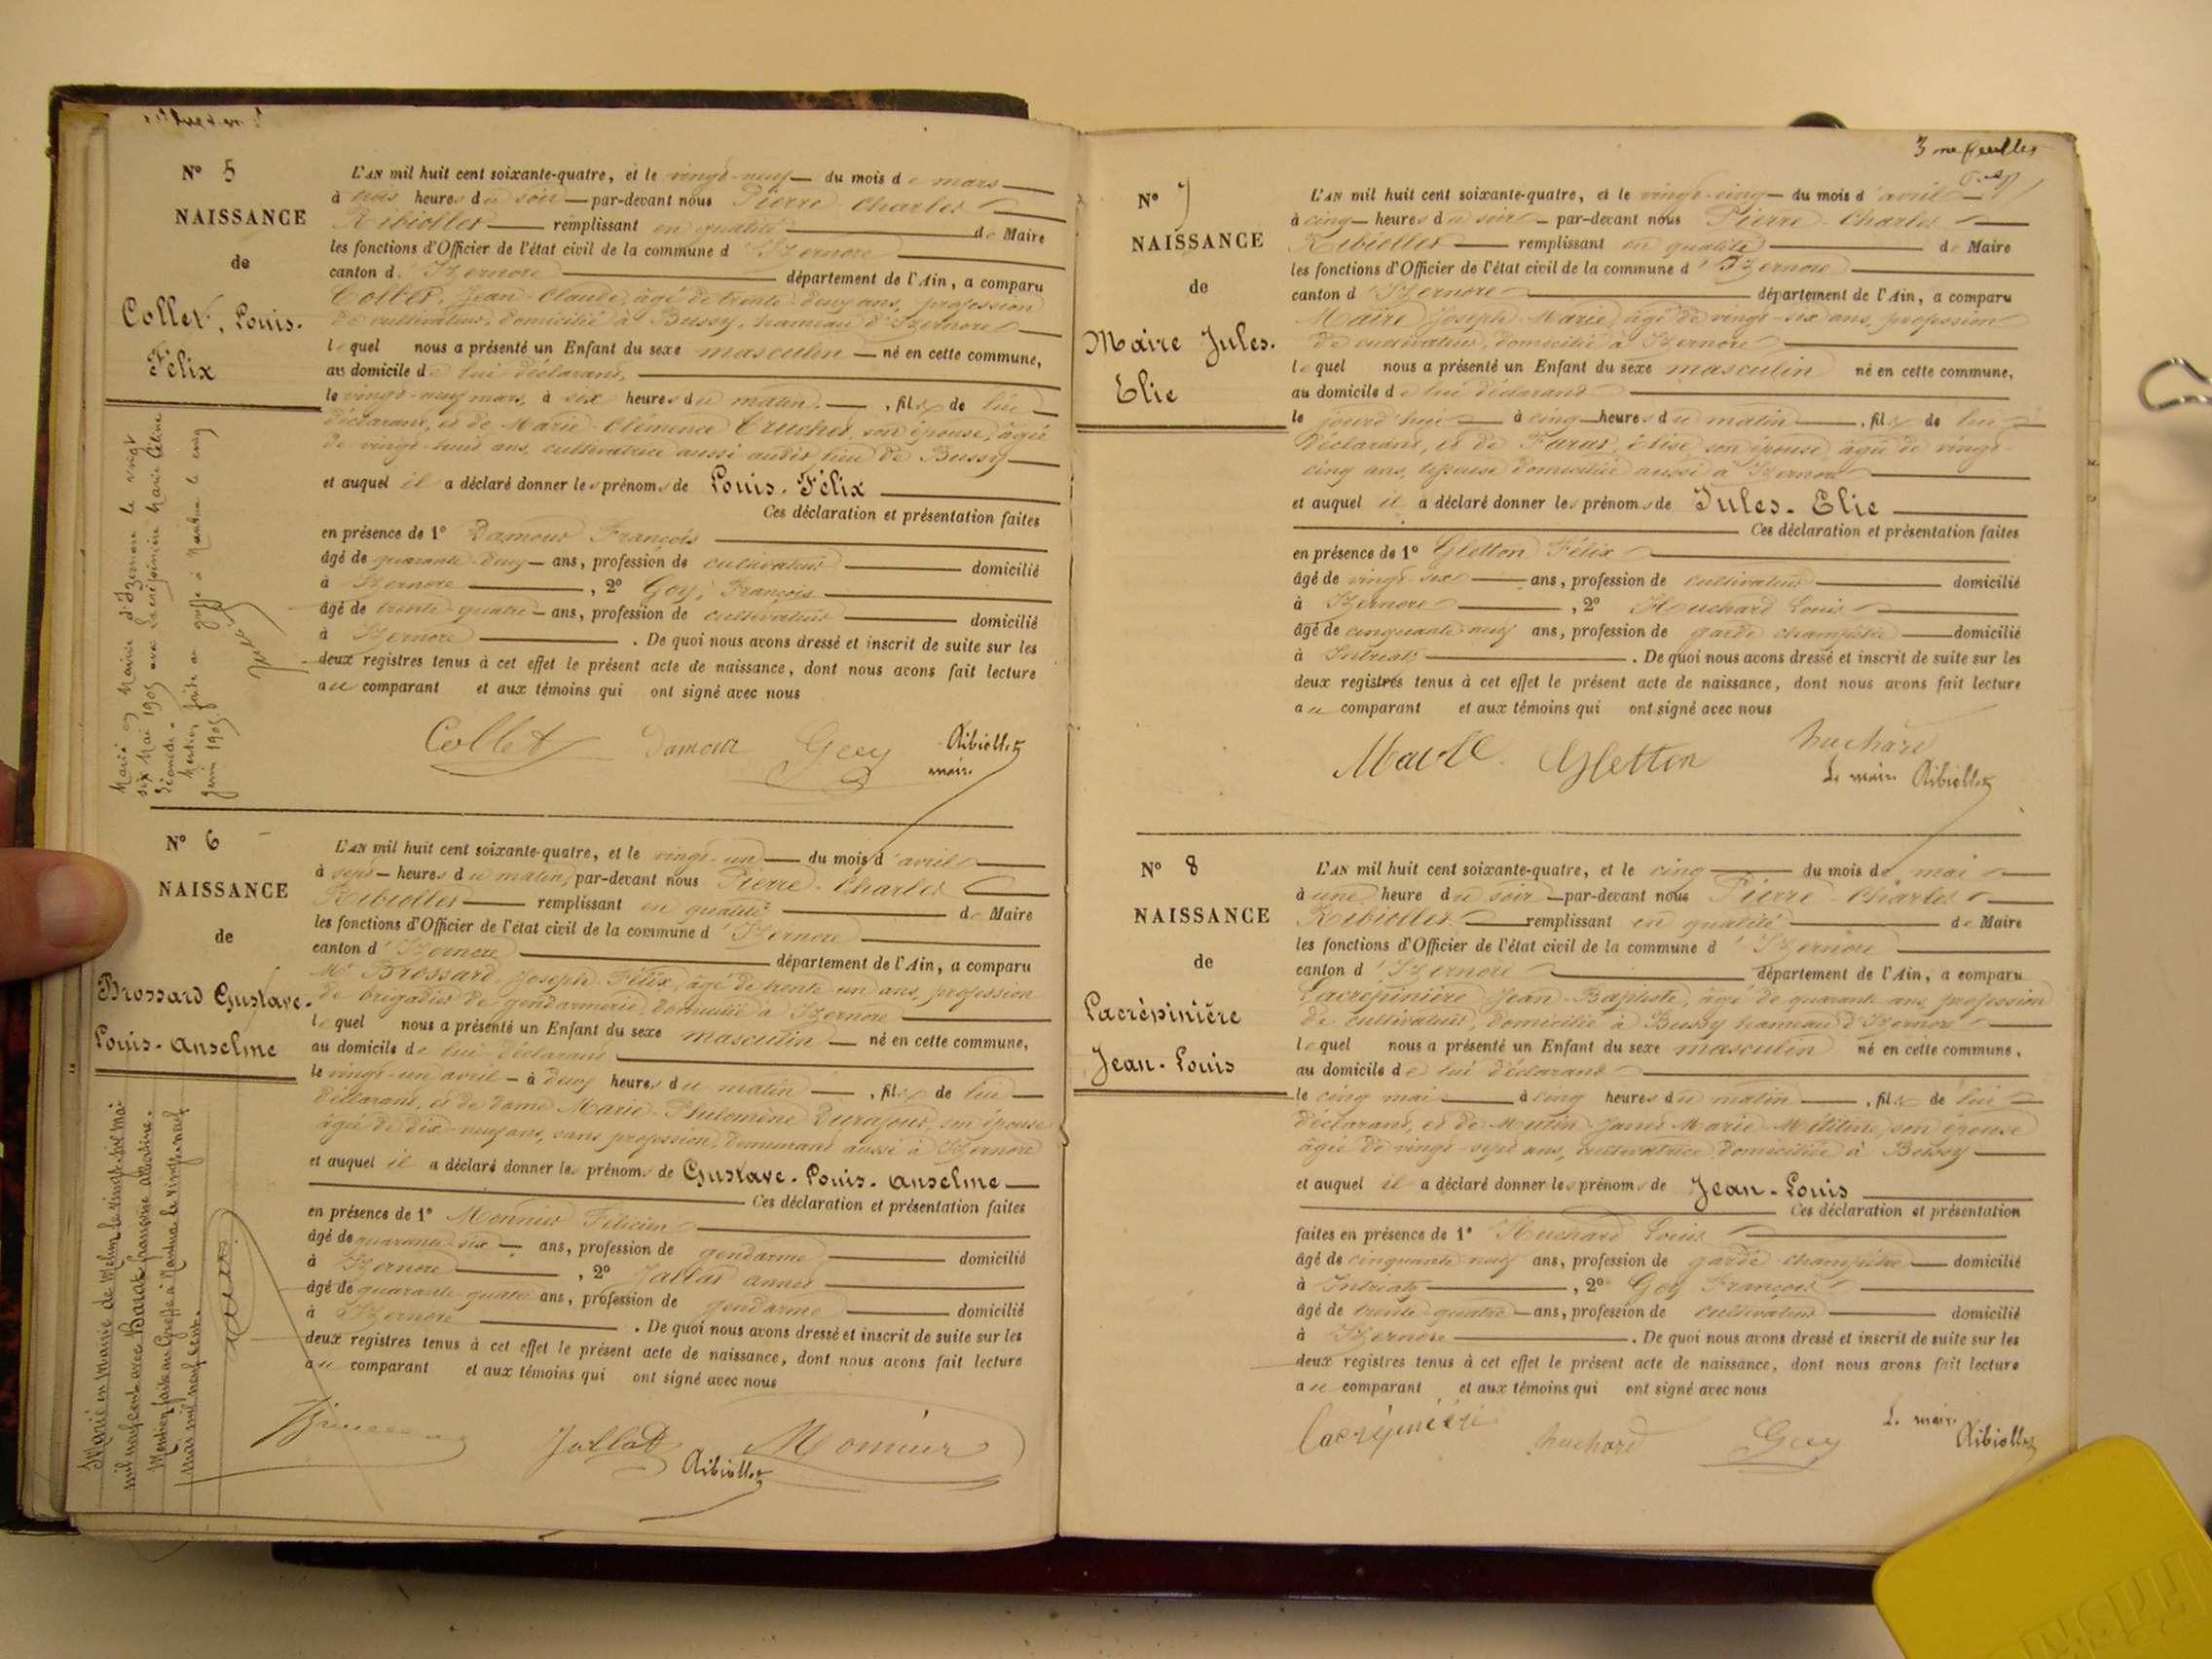 N° 5
NAISSANCE
de
Collet, Louis-
Félix
L'AN mil huit cent soixante-quatre, et le vingt-neuf du mois de mars
à trois heures du soir par-devant nous Pierre-Charles
Ribiollet remplissant en qualité de Maire
les fonctions d'Officier de l'état civil de la commune d'Izernore
canton d'Izernore département de l'Ain, a comparu
Collet, Jean-Claude, âgé de trente-deux ans, profession
de cultivateur, domicilié à Bussy, hameau d'Izernore
lequel nous a présenté un Enfant du sexe masculin né en cette commune,
au domicile de lui déclarant,
le vingt-neuf mars, à six heures du matin, fils de lui
déclarant, et de Marie-Clémence Truchet, son épouse, âgée
de vingt-huit ans, cultivatrice aussi audit lieu de Bussy
et auquel il a déclaré donner les prénoms de Louis-Félix
Ces déclaration et présentation faites
en présence de 1° Damour François
âgé de quarante-deux ans, profession de cultivateur domicilié
à Izernore, 2° Goy, François
âgé de trente-quatre ans, profession de cultivateur domicilié
à Izernore. De quoi nous avons dressé et inscrit de suite sur les
deux registres tenus à cet effet le présent acte de naissance, dont nous avons fait lecture
au comparant et aux témoins qui ont signé avec nous
Collet Damour Goy Ribiollet
maire
Marié en Mairie d'Izernore le vingt
six Mai 1905 avec Lacrépinière Marie Céline
Léonide.
Mention faite au greffe à Nantua le cinq
juin 1905.
N° 6
NAISSANCE
de
Brossard Gustave-
Louis-Anselme
L'AN mil huit cent soixante-quatre, et le vingt-un du mois d'avril
à sept heures du matin, par-devant nous Pierre-Charles
Ribiollet remplissant en qualité de Maire
les fonctions d'Officier de l'état civil de la commune d'Izernore
canton d'Izernore département de l'Ain, a comparu
Mr Brossard, Joseph-Félix, âgé de trente un ans, profession
de brigadier de gendarmerie, domicilié à Izernore
lequel nous a présenté un Enfant du sexe masculin né en cette commune,
au domicile de lui déclarant
le vingt-un avril à deux heures du matin, fils de lui
déclarant, et de dame Marie-Philomène Durafour, son épouse
âgée de dix-neuf ans, sans profession, demeurant aussi à Izernore
et auquel il a déclaré donner les prénoms de Gustave-Louis-Anselme
Ces déclaration et présentation faites
en présence de 1° Monnier Félicien
âgé de quarante-six ans, profession de gendarme domicilié
à Izernore, 2° Jallat
âgé de quarante-quatre ans, profession de gendarme domicilié
à Izernore. De quoi nous avons dressé et inscrit de suite sur les
deux registres tenus à cet effet le présent acte de naissance, dont nous avons fait lecture
au comparant et aux témoins qui ont signé avec nous
Jallat Monnier
Ribiollet
Marié en Mairie de Melun le vingt-six mai
mil neuf cent avec
Mention faite au Greffe à Nantua le vingt-neuf
mai mil neuf cent.
3me feuillet
N° 7
NAISSANCE
de
Maire Jules-
Elie
L'AN mil huit cent soixante-quatre, et le vingt-cinq du mois d'avril
à cinq heures du soir par-devant nous Pierre-Charles
Ribiollet remplissant en qualité de Maire
les fonctions d'Officier de l'état civil de la commune d'Izernore
canton d'Izernore département de l'Ain, a comparu
Maire Joseph-Marie, âgé de vingt-six ans, profession
de cultivateur, domicilié à Izernore
lequel nous a présenté un Enfant du sexe masculin né en cette commune,
au domicile de lui déclarant
le jourd'hui à cinq heures du matin, fils de lui
déclarant, et de Élise, son épouse, âgée de vingt-
cinq ans, domiciliée aussi à Izernore
et auquel il a déclaré donner les prénoms de Jules-Elie
Ces déclaration et présentation faites
en présence de 1° Gletton Félix
âgé de vingt-six ans, profession de cultivateur domicilié
à Izernore, 2° Huchard Louis
âgé de cinquante-neuf ans, profession de garde champêtre domicilié
à Intriat. De quoi nous avons dressé et inscrit de suite sur les
deux registres tenus à cet effet le présent acte de naissance, dont nous avons fait lecture
au comparant et aux témoins qui ont signé avec nous
Maire Gletton huchard
Le maire Ribiollet
N° 8
NAISSANCE
de
Lacrépinière
Jean-Louis
L'AN mil huit cent soixante-quatre, et le cinq du mois de mai
à une heure du soir par-devant nous Pierre-Charles
Ribiollet remplissant en qualité de Maire
les fonctions d'Officier de l'état civil de la commune d'Izernore
canton d'Izernore département de l'Ain, a comparu
Lacrépinière Jean-Baptiste, âgé de quarante ans, profession
de cultivateur, domicilié à Bussy hameau d'Izernore
lequel nous a présenté un Enfant du sexe masculin né en cette commune,
au domicile de lui déclarant
le cinq mai à cinq heures du matin, fils de lui
déclarant, et de Marie son épouse
âgée de vingt-sept ans, cultivatrice, domiciliée à Bussy
et auquel il a déclaré donner les prénoms de Jean-Louis
Ces déclaration et présentation
faites en présence de 1° Huchard Louis
âgé de cinquante-neuf ans, profession de garde champêtre domicilié
à Intriat, 2° Goy François
âgé de trente-quatre ans, profession de cultivateur domicilié
à Izernore. De quoi nous avons dressé et inscrit de suite sur les
deux registres tenus à cet effet le présent acte de naissance, dont nous avons fait lecture
au comparant et aux témoins qui ont signé avec nous
Lacrépinière huchard Goy Le maire
Ribiollet